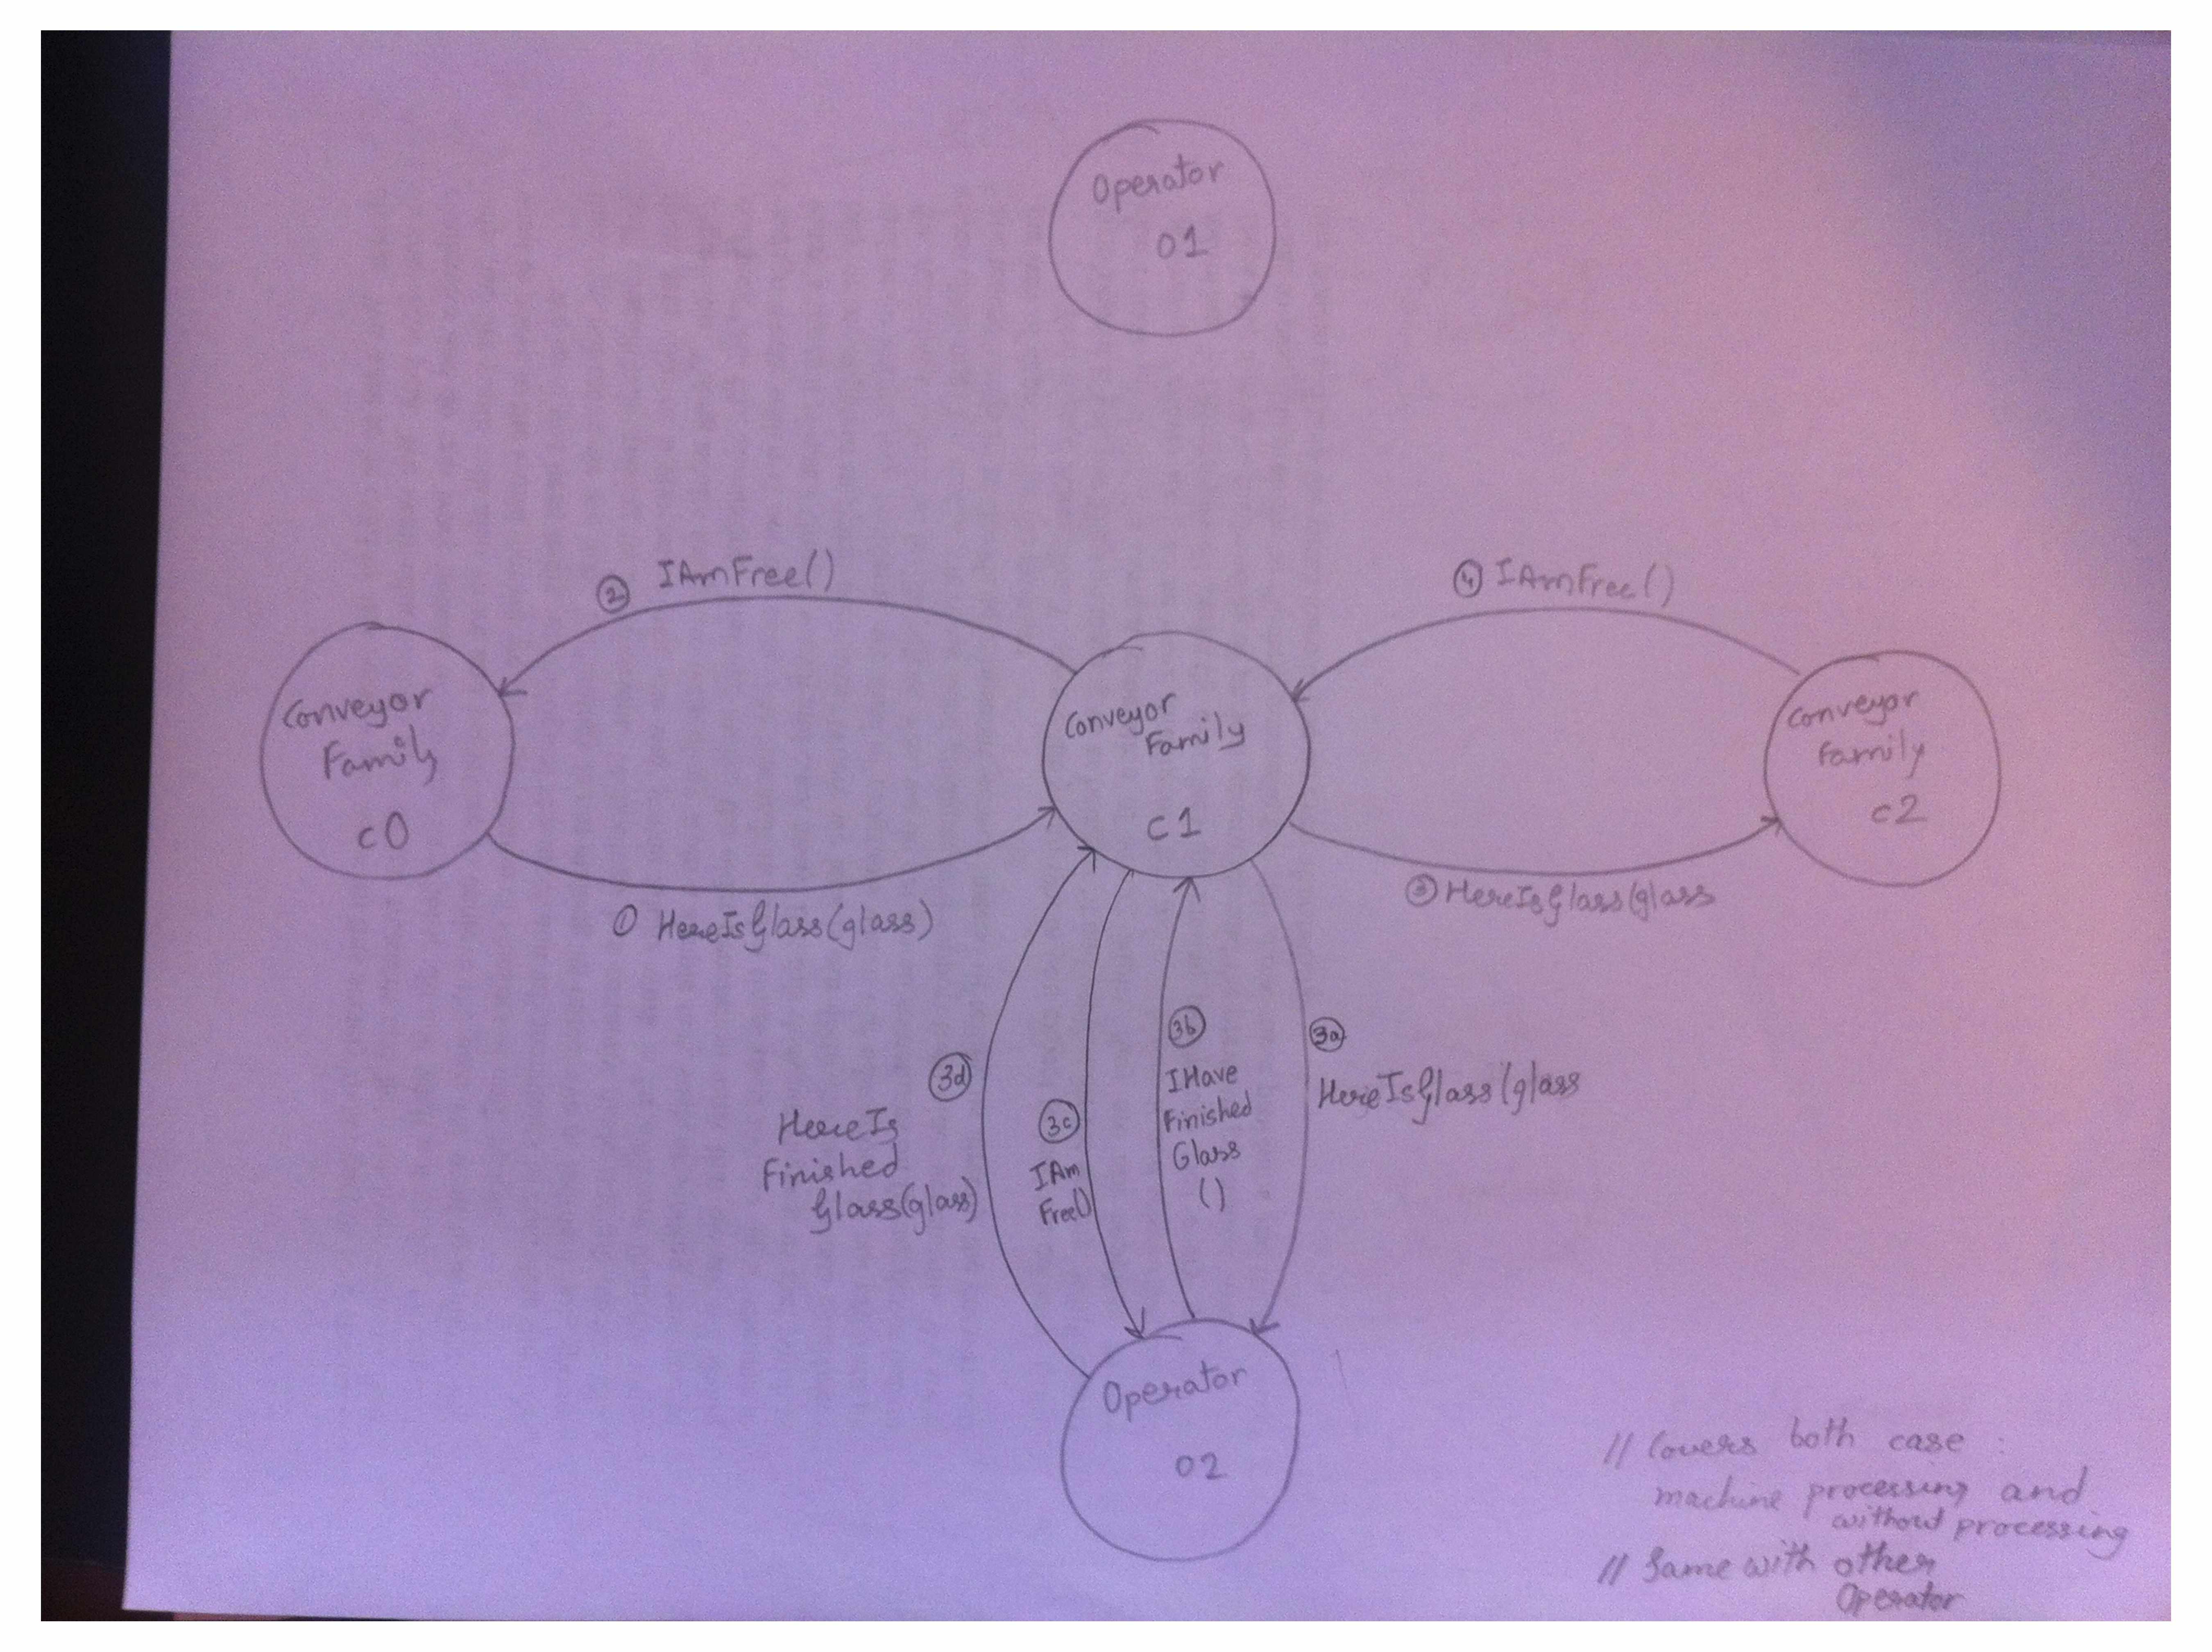 Operator
o1
② IAmFree()
④ IAmFree()
Conveyor
Family
c0
Conveyor
Family
c1
Conveyor
Family
c2
① HereIsGlass(glass)
③ HereIsGlass(glass
3b
IHave
Finished
Glass
()
3a
HereIsGlass(glass
3d
HereIs
Finished
Glass(glass)
3c
IAm
Free()
Operator
o2
// Covers both case :
machine processing and
without processing
// Same with other
Operator